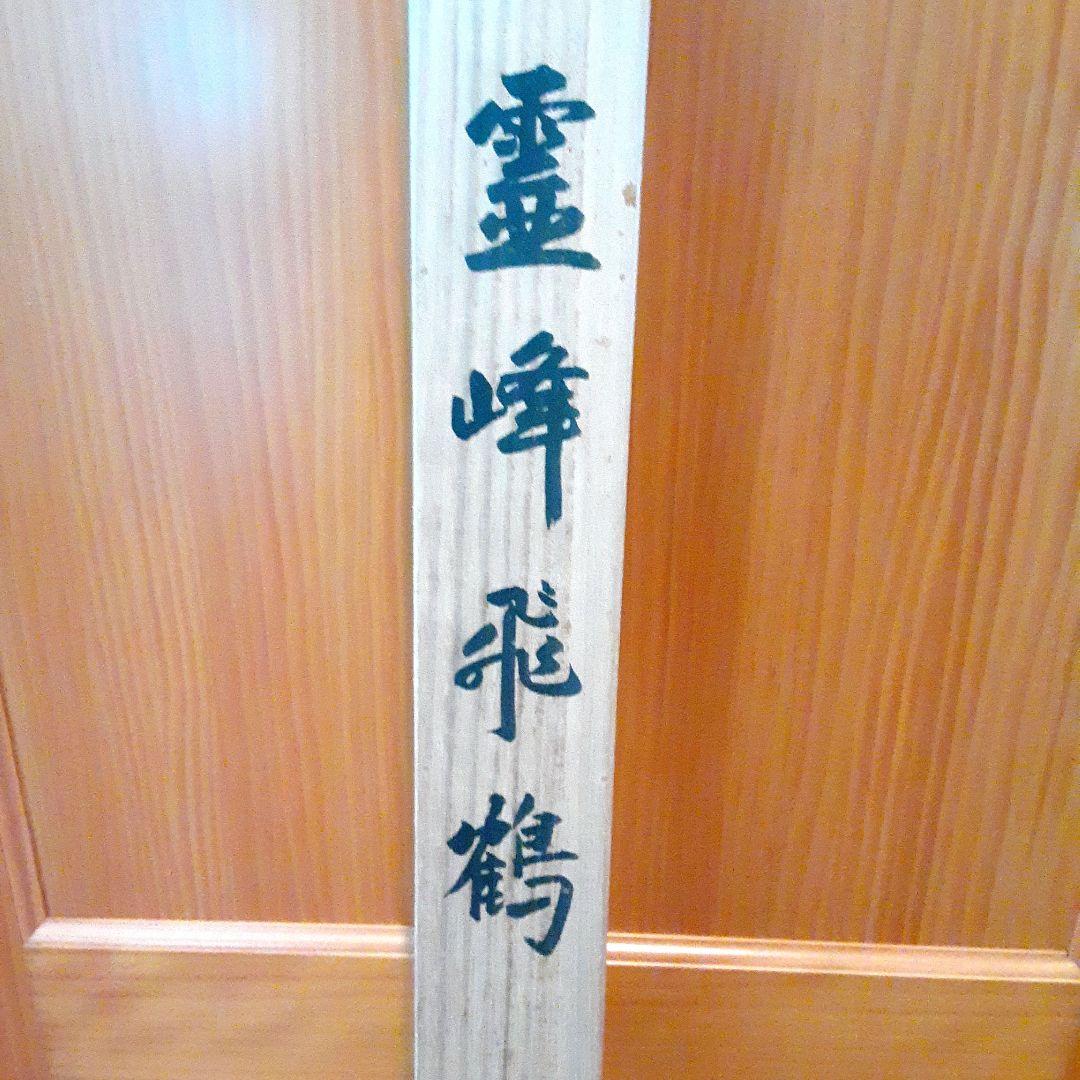 霊峰飛鶴